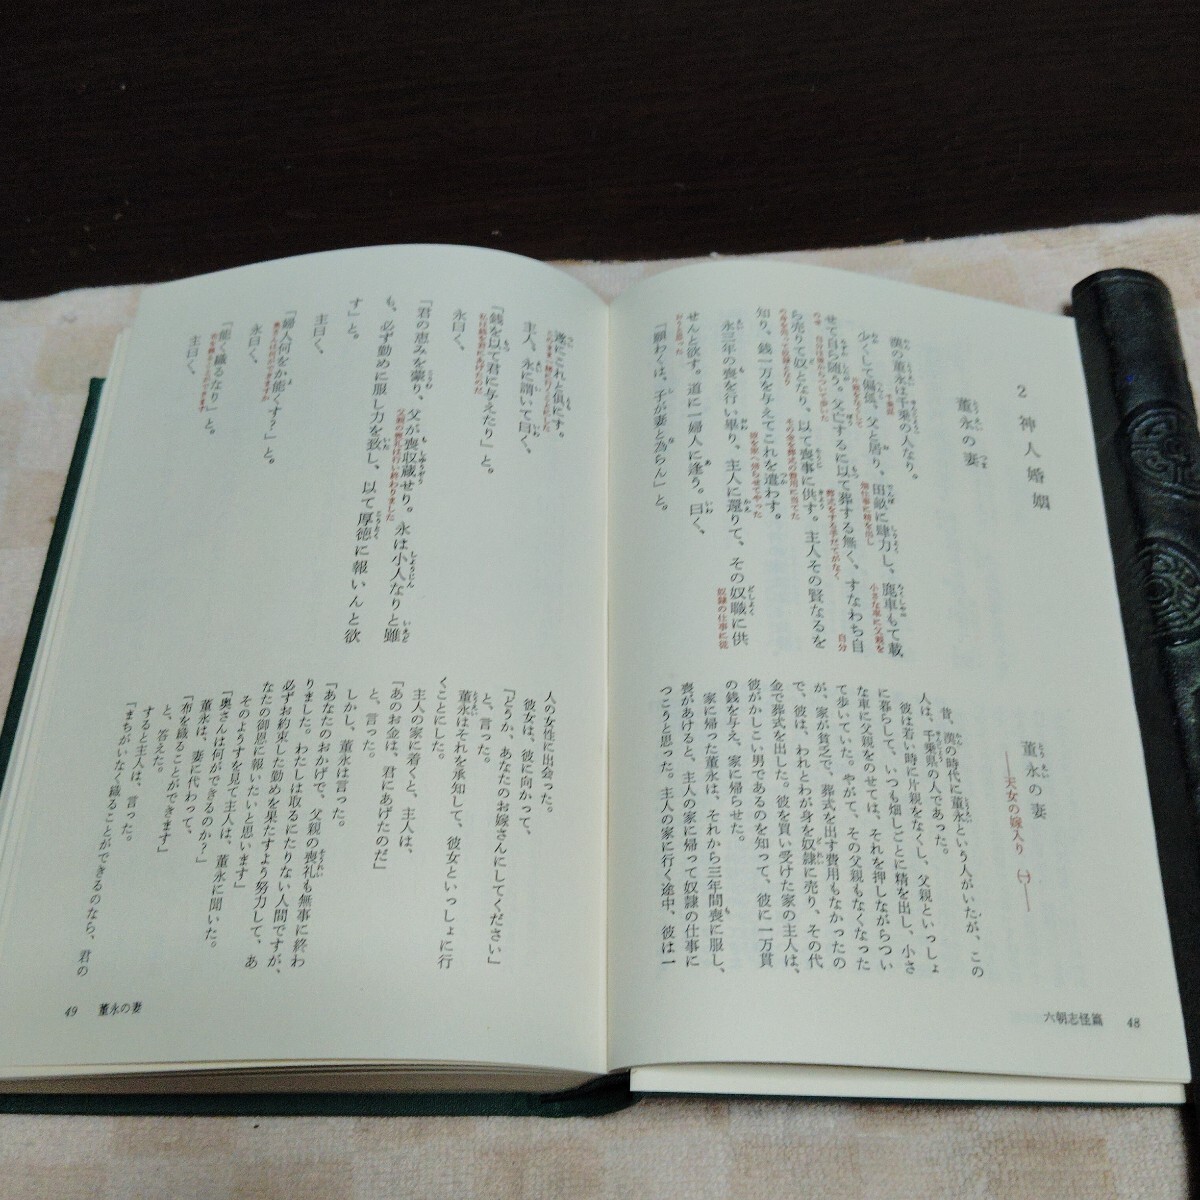 2 神人婚姻
董永の妻
漢の董永は千乗の人なり。
少くして偏孤、父と居り、田畝に肆力し、鹿車もて載
せて自ら随う。父亡するに以て葬する無く、すなわち自
ら売りて奴となり、以て喪事に供す。主人その賢なるを
知り、銭一万を与えてこれを遣わす。
永三年の喪を行い畢り、主人に還りて、その奴職に供
せんと欲す。道に一婦人に逢う。曰く、
「願わくは、子が妻と為らん」と。
董永の妻
――天女の嫁入り ㈠――
昔、漢の時代に董永という人がいたが、この
人は、千乗県の人であった。
彼は若い時に片親をなくし、父親といっしょ
に暮らして、いつも畑しごとに精を出し、小さ
な車に父親をのせては、それを押しながらつい
て歩いていた。やがて、その父親もなくなった
が、家が貧乏で、葬式を出す費用もなかったの
で、彼は、われとわが身を奴隷に売り、その代
金で葬式を出した。彼を買い受けた家の主人は、
彼がかしこい男であるのを知って、彼に一万貫
の銭を与え、家に帰らせた。
家に帰った董永は、それから三年間喪に服し、
喪があけると、主人の家に帰って奴隷の仕事に
つこうと思った。主人の家に行く途中、彼は一
六朝志怪篇 48
遂にこれと俱にす。
主人、永に謂いて曰く、
「銭を以て君に与えたり」と。
永曰く、
「君の恵みを蒙り、父が喪収蔵せり。永は小人なりと雖
も、必ず勤めに服し力を致し、以て厚徳に報いんと欲
す」と。
主曰く、
「婦人何をか能くす？」と。
永曰く、
「能く織るなり」と。
主曰く、
人の女性に出会った。
彼女は、彼に向かって、
「どうか、あなたのお嫁さんにしてください」
と、言った。
董永はそれを承知して、彼女といっしょに行
くことにした。
主人の家に着くと、主人は、
「あのお金は、君にあげたのだ」
と、言った。
しかし、董永は言った。
「あなたのおかげで、父親の喪礼も無事に終わ
りました。わたしは取るにたりない人間ですが、
必ずお約束した勤めを果たすよう努力して、あ
なたの御恩に報いたいと思います」
そのようすを見て主人は、董永に聞いた。
「奥さんは何ができるのか？」
董永は、妻に代わって、
「布を織ることができます」
と、答えた。
すると主人は、言った。
「まちがいなく織ることができるのなら、君の
49 董永の妻